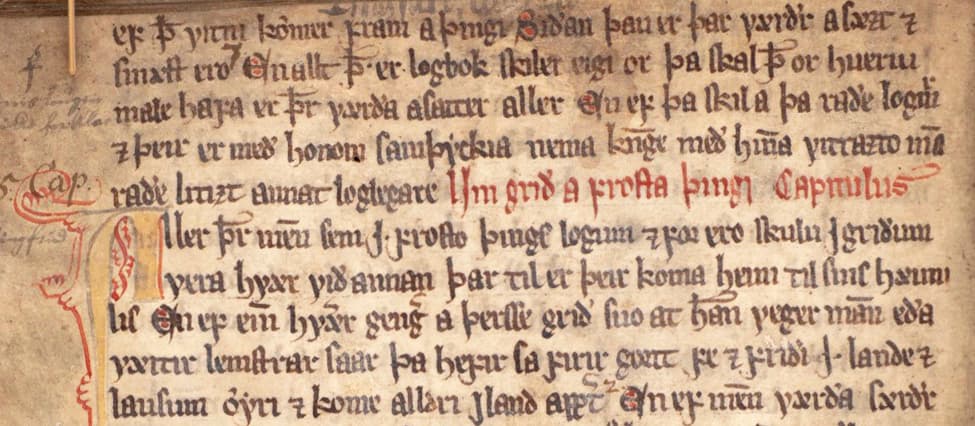 ef þ̄ vitni kómer fram a þingi Siðan þau er þar værðr a sæzt ⁊
smæst ero En allt þ̄ er logbok skiler eigi or þa skal þ̄ or hueriu
male hafa er þr̄ værða asatter aller En ef þa skil a þa raðe logm̄
⁊ þeir er með honom samþyckia nema kn̄ge með hin̄a vitrazto m̄a
raðe litizt annat loglegare Um grið a frosta þingi Capitulus
5. Cap.
Aller þr̄ men̄ sem j frosto þings logum ⁊ for ero skulu j griðum
vera hvær við annan þar til er þeir koma heim til sins hæimi
lis En ef ein̄ hvær geng a þersse grið suo at han̄ veger man̄ eða
væitir lemstrar saar þa hefir sa firir goert fe ⁊ friði j lande ⁊
lausum óyri ⁊ kome alldri j land apt En ef men̄ værða særðr